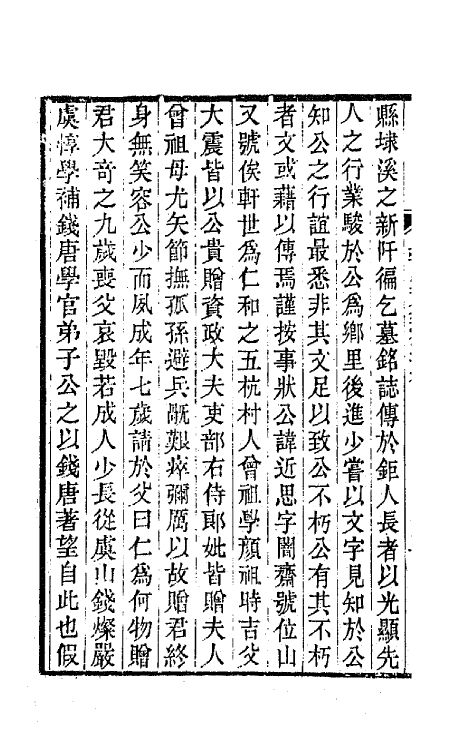 縣埭溪之新阡徧乞墓銘誌傳於鉅人長者以光顯先
人之行業駿於公爲鄉里後進少嘗以文字見知於公
知公之行誼最悉非其文足以致公不朽公有其不朽
者文或藉以傳焉謹按事狀公諱近思字闇齋號位山
又號俟軒世爲仁和之五杭村人曾祖學顏祖時吉父
大震皆以公貴贈資政大夫吏部右侍郎妣皆贈夫人
曾祖母尤矢節撫孤孫避兵戹艱瘁彌厲以故贈君終
身無笑容公少而夙成年七歲請於父曰仁爲何物贈
君大奇之九歲喪父哀毀若成人少長從虞山錢燦嚴
虞惇學補錢唐學官弟子公之以錢唐著望自此也假